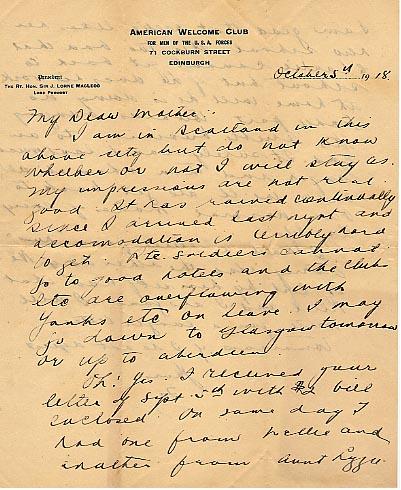 AMERICAN WELCOME CLUB
FOR MEN OF THE U.S.A. FORCES
71 COCKBURN STREET
EDINBURGH
October 5th 1918.
President
THE RT. HON. SIR J. LORNE MACLEOD
LORD PROVOST
My Dear Mother:-
I am in Scotland in this
above city but do not know
whether or not I will stay as
my impressions are not real
good. It has rained continually
since I arrived last night and
accomodation is terribly hard
to get. Pte. soldiers cannot
go to good hotels and the clubs
etc are overflowing with
Yanks etc on leave. I may
go down to Glasgow tomorrow
or up to aberdeen.
Oh! Yes. I received your
letter of Sept 5th with bill
enclosed on same day I
had one from Nellie and
another from aunt Lizzie.